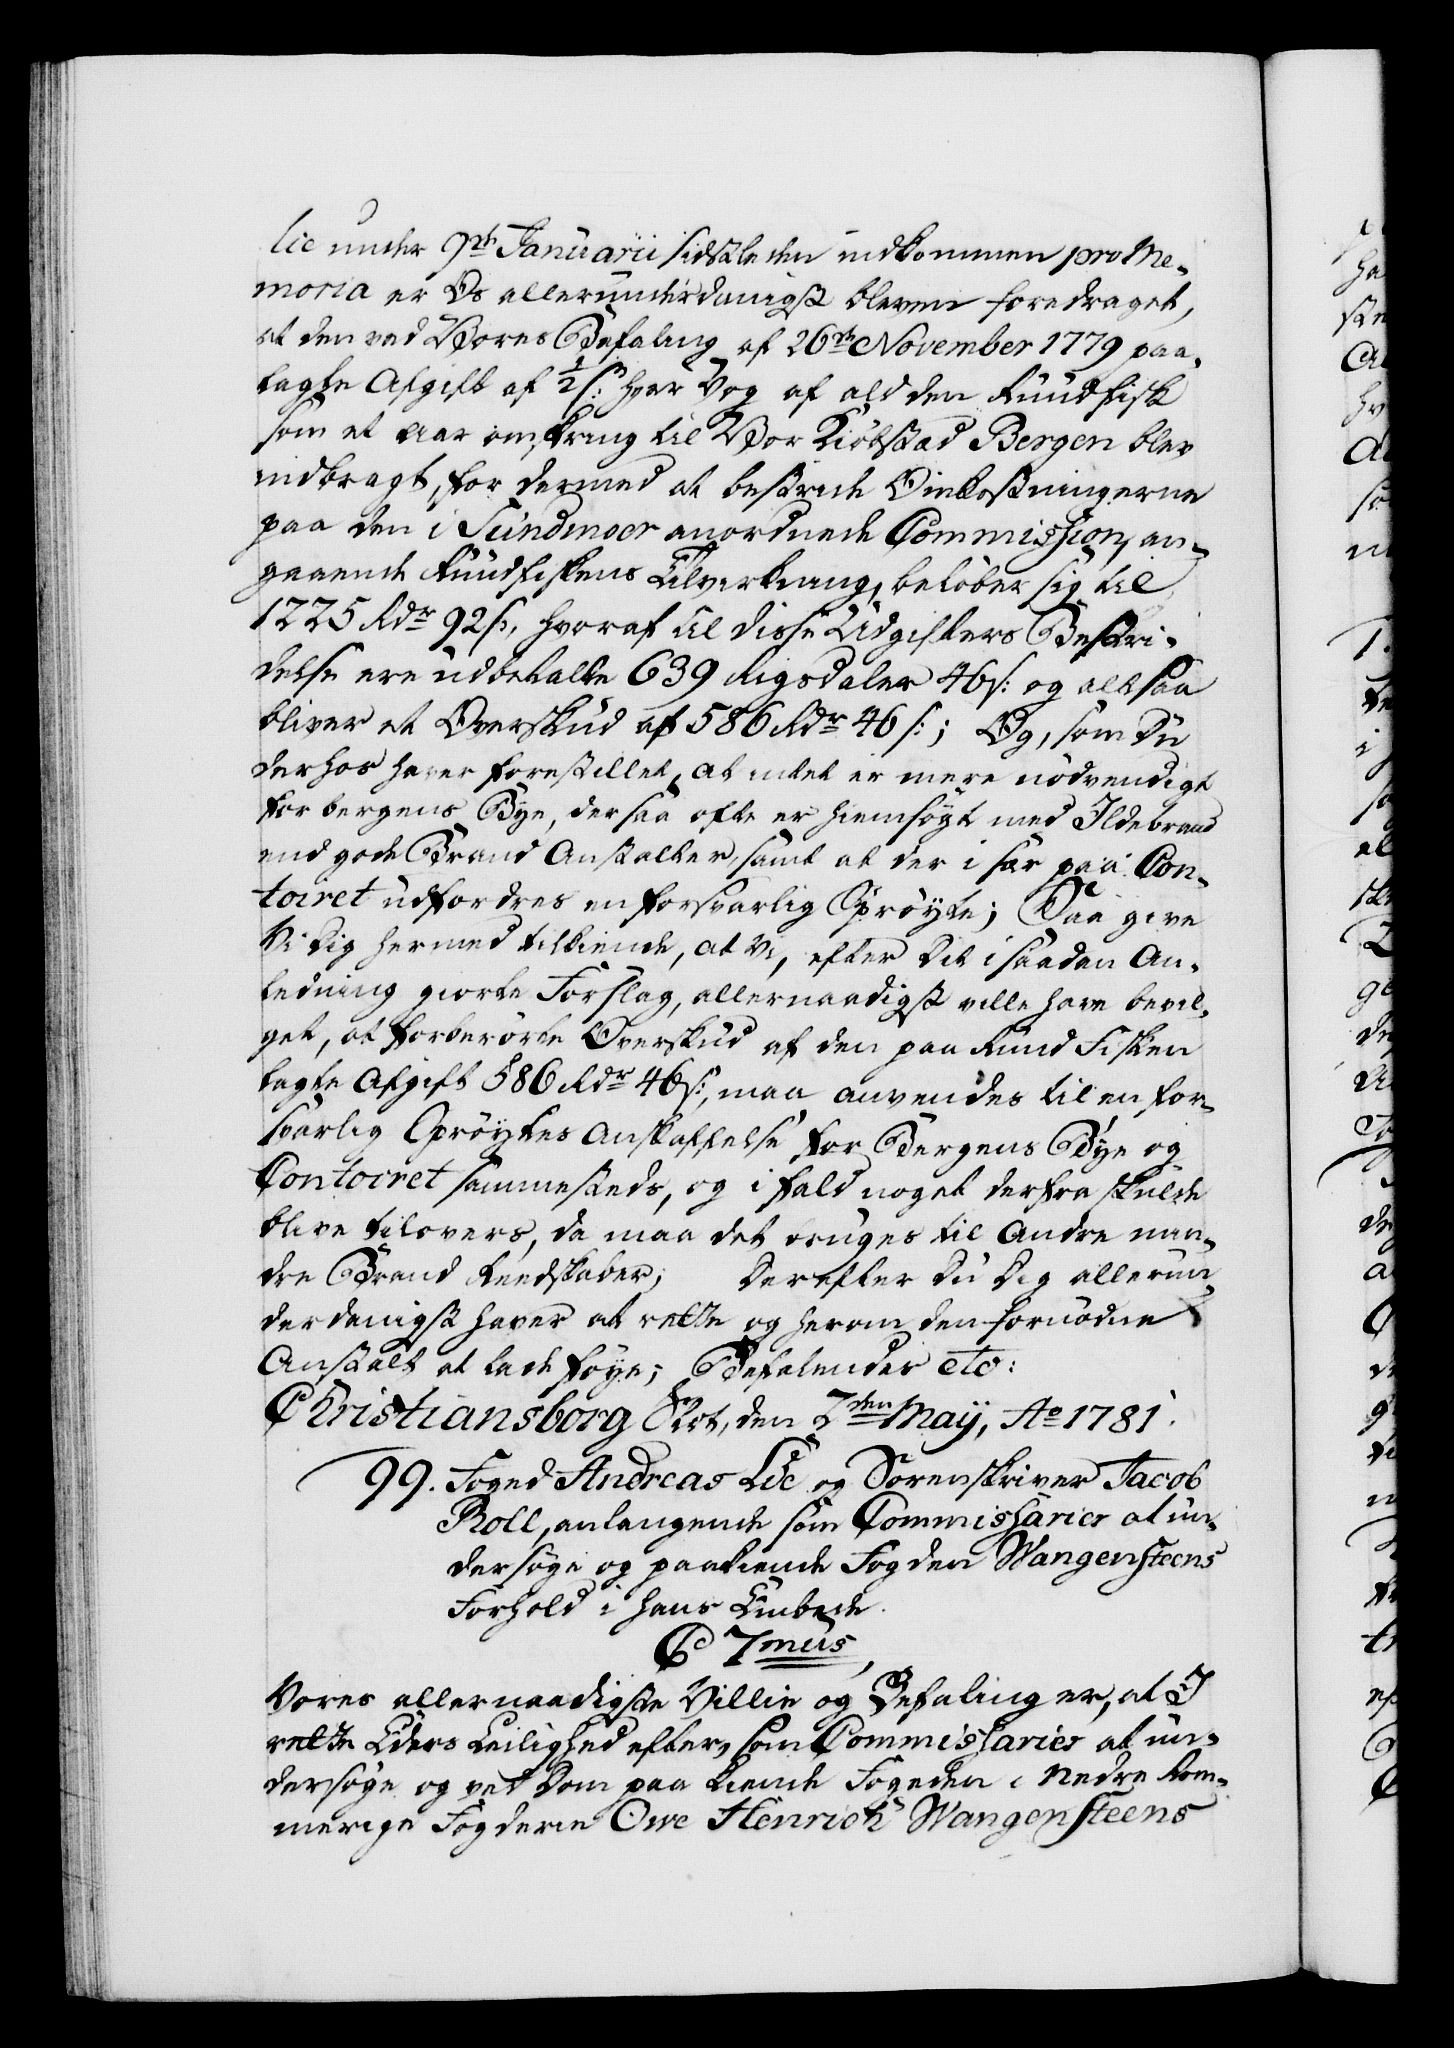 lie under 9de Januarii sidstleden indkommen pro Me-
moria er Os allerunderdanigst bleven foredraget,
at den ved Vores Befaling af 26de November 1779 paa-
lagte Afgift af ½ s: hver Vog af ald den Rundfisk
som et Aar omkring til Vor Kiøbstad Bergen blev
indbragt, for dermed at bestride Omkostningerne
paa den i Sundmoer anordnede Commission, an-
gaaende Rundfiskens Tilvirkning, beløber sig til
1225 Rdr 92 s:, hvoraf til disse Udgifters Bestri-
delse ere udbetalte 639 Rigsdaler 46 s: og altsaa
bliver et Overskud af 586 Rdr 46 s:; Og, som Du
derhos haver forestillet, at intet er mere nødvendigt
for bergens Bye, der saa ofte er hiemsøgt med Ildebrand
end gode Brand Anstalter, samt at der i sær paa Con-
toiret udfordres en forsvarlig Sprøyte; Saa give
Vi Dig hermed tilkiende, at Vi, efter Dit i saadan An-
ledning giorte Forslag, allernaadigst ville have bevil-
get, at forberørte Overskud af den paa Rund Fisken
lagte Afgift 586 Rdr 46 s:, maa anvendes til en for-
svarlig Sprøytes Anskaffelse for Bergens Bye og
Contoiret sammesteds, og ifald noget derfra skulde
blive tilovers, da maa det bruges til Andre min-
dre Brand Reedskaber; Derefter Du Dig allerun-
derdanigst haver at rette og herom den fornødne
Anstalt at lade føye; Befalendes etc:
Christiansborg Slot, den 2den May, Ao 1781.
99. Foged Andreas Lie og Sorenskriver Jacob
Roll, anlangende som Commissarier at un-
dersøge og paakiende Fogden Wangensteens
Forhold i hans Embede.
C 7mus,
Vores allernaadigste Villie og Befaling er, at I
rette Eders Leilighed efter, som Commissarier at un-
dersøge og ved Dom paa kiende Fogeden i Nedre Rom-
merige Fogderie Owe Henrich Wangensteens